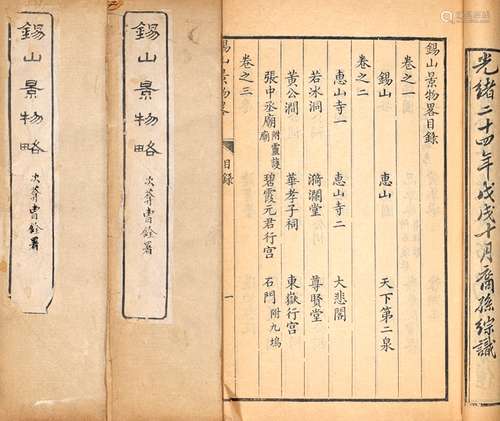 光緒二十四年戊戌十月裔孫綜識
錫山景物畧目錄
卷之一
錫山 惠山 天下第二泉
卷之二
惠山寺一 惠山寺二 大悲閣
若冰洞 漪瀾堂 尊賢堂
黃公澗 華孝子祠 東嶽行宮
張中丞廟附靈護廟 碧霞元君行宮 石門附九塢
卷之三
錫山景物畧 目錄 一
錫山景物略
次葊曹銓署
錫山景物略
次葊曹銓署